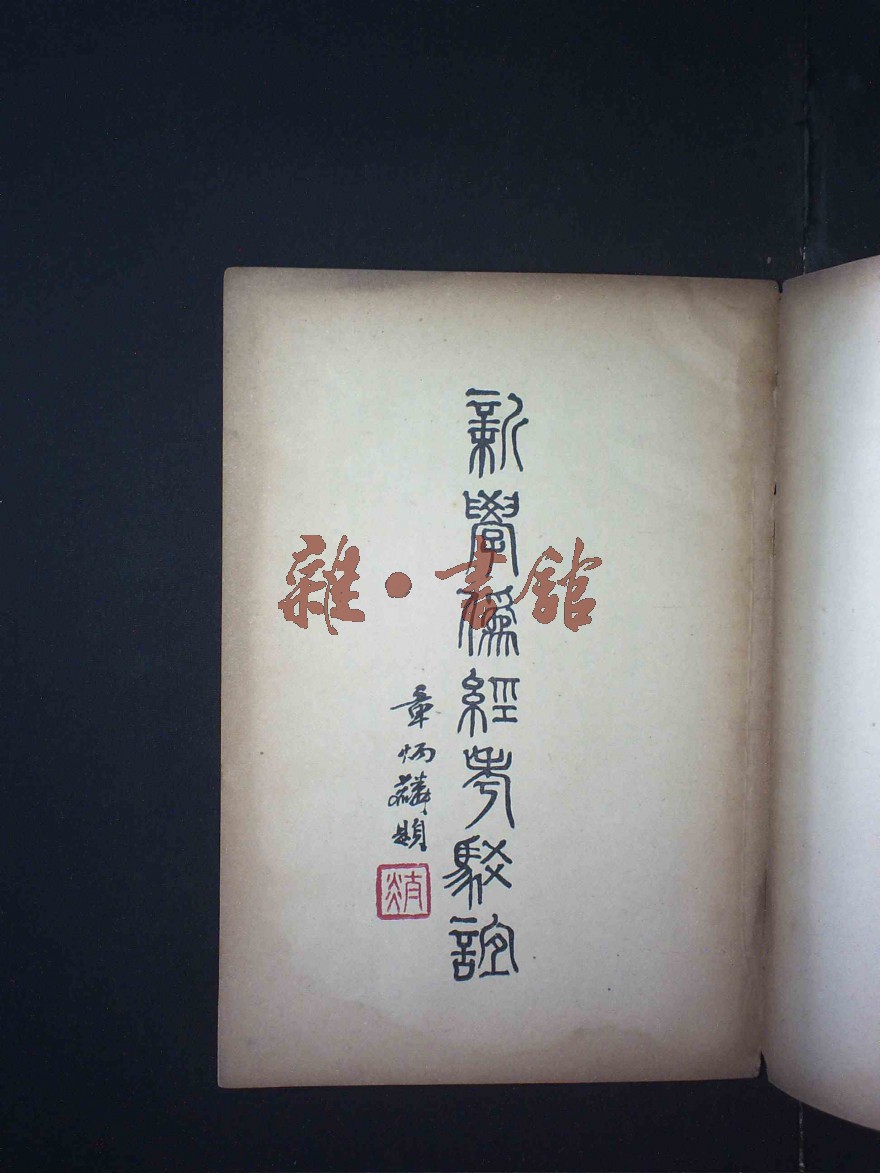 新學僞經考駁誼
章炳麟題
雜·書館